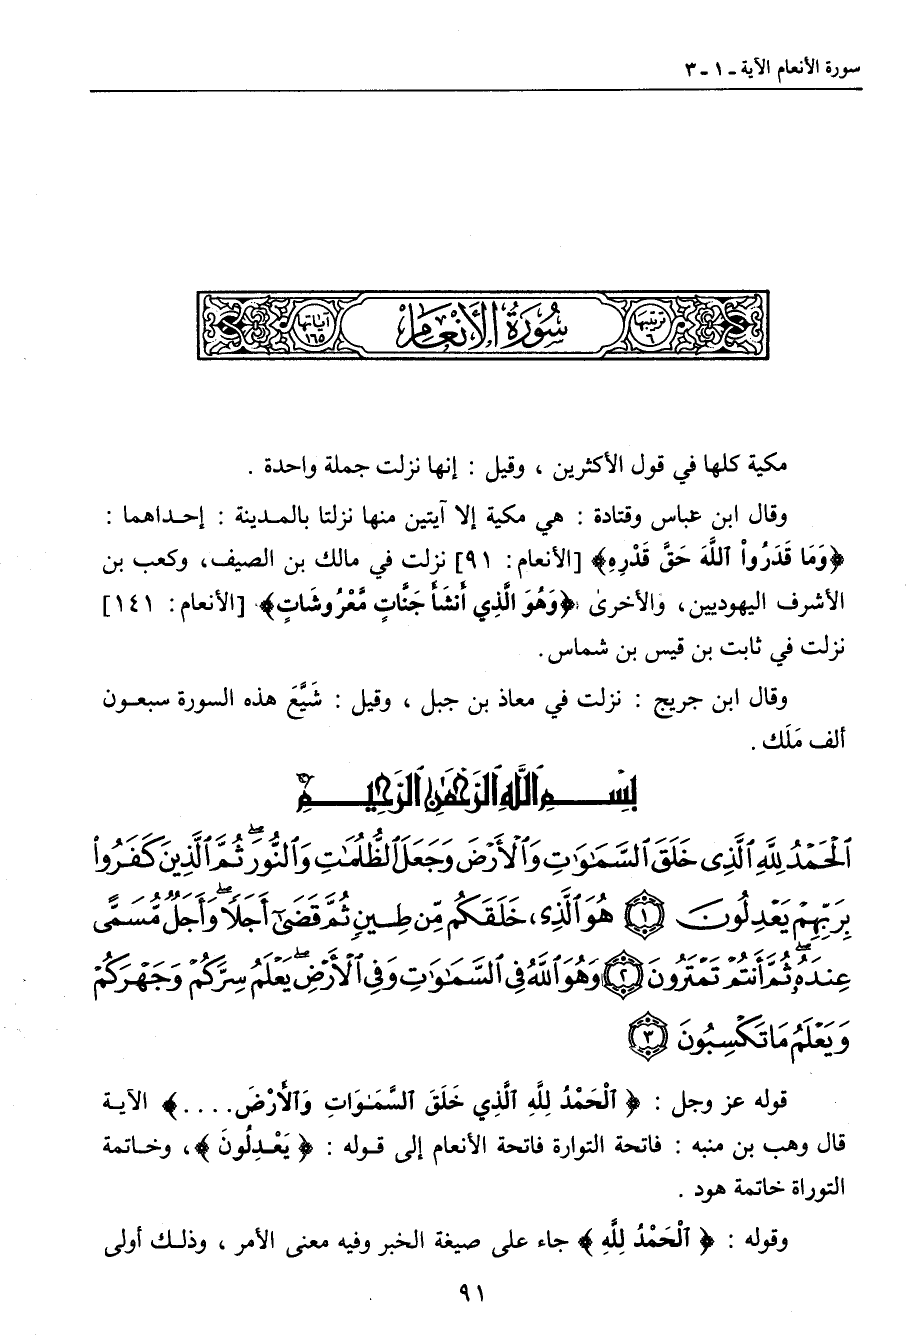 سورة الأنعام الآية ـ ١ ـ ٣
ترتيبها ٦ سُورَةُ الأَنْعَامِ آياتها ١٦٥
مكية كلها في قول الأكثرين ، وقيل : إنها نزلت جملة واحدة .
وقال ابن عباس وقتادة : هي مكية إلا آيتين منها نزلتا بالمـدينة : إحـداهما :
﴿وَمَا قَدَرُواْ ٱللَّهَ حَقَّ قَدْرِهِ﴾ [الأنعام: ٩١] نزلت في مالك بن الصيف، وكعب بن
الأشرف اليهوديين، والأخرىٰ ﴿وَهُوَ الَّذِي أَنشَأَ جَنَّاتٍ مَّعْرُوشَاتٍ﴾ [الأنعام: ١٤١]
نزلت في ثابت بن قيس بن شماس.
وقال ابن جريج : نزلت في معاذ بن جبل ، وقيل : شَيَّعَ هذه السورة سبعـون
ألف مَلَك .
بِسْمِ ٱللَّهِ ٱلرَّحْمَٰنِ ٱلرَّحِيمِ
ٱلْحَمْدُ لِلَّهِ ٱلَّذِى خَلَقَ ٱلسَّمَٰوَٰتِ وَٱلْأَرْضَ وَجَعَلَ ٱلظُّلُمَٰتِ وَٱلنُّورَ ۖ ثُمَّ ٱلَّذِينَ كَفَرُوا۟
بِرَبِّهِمْ يَعْدِلُونَ ١ هُوَ ٱلَّذِى خَلَقَكُم مِّن طِينٍ ثُمَّ قَضَىٰٓ أَجَلًا ۖ وَأَجَلٌ مُّسَمًّى
عِندَهُۥ ۖ ثُمَّ أَنتُمْ تَمْتَرُونَ ٢ وَهُوَ ٱللَّهُ فِى ٱلسَّمَٰوَٰتِ وَفِى ٱلْأَرْضِ ۖ يَعْلَمُ سِرَّكُمْ وَجَهْرَكُمْ
وَيَعْلَمُ مَا تَكْسِبُونَ ٣
قوله عز وجل : ﴿ ٱلْحَمْدُ لِلَّهِ ٱلَّذِي خَلَقَ ٱلسَّمَٰوَاتِ وَٱلأَرْضَ....﴾ الآيـة
قال وهب بن منبه : فاتحة التوارة فاتحة الأنعام إلى قـوله : ﴿ يَعْـدِلُونَ ﴾، وخـاتمة
التوراة خاتمة هود .
وقوله : ﴿ ٱلْحَمْدُ لِلَّهِ ﴾ جاء على صيغة الخبر وفيه معنى الأمر ، وذلـك أولى
٩١